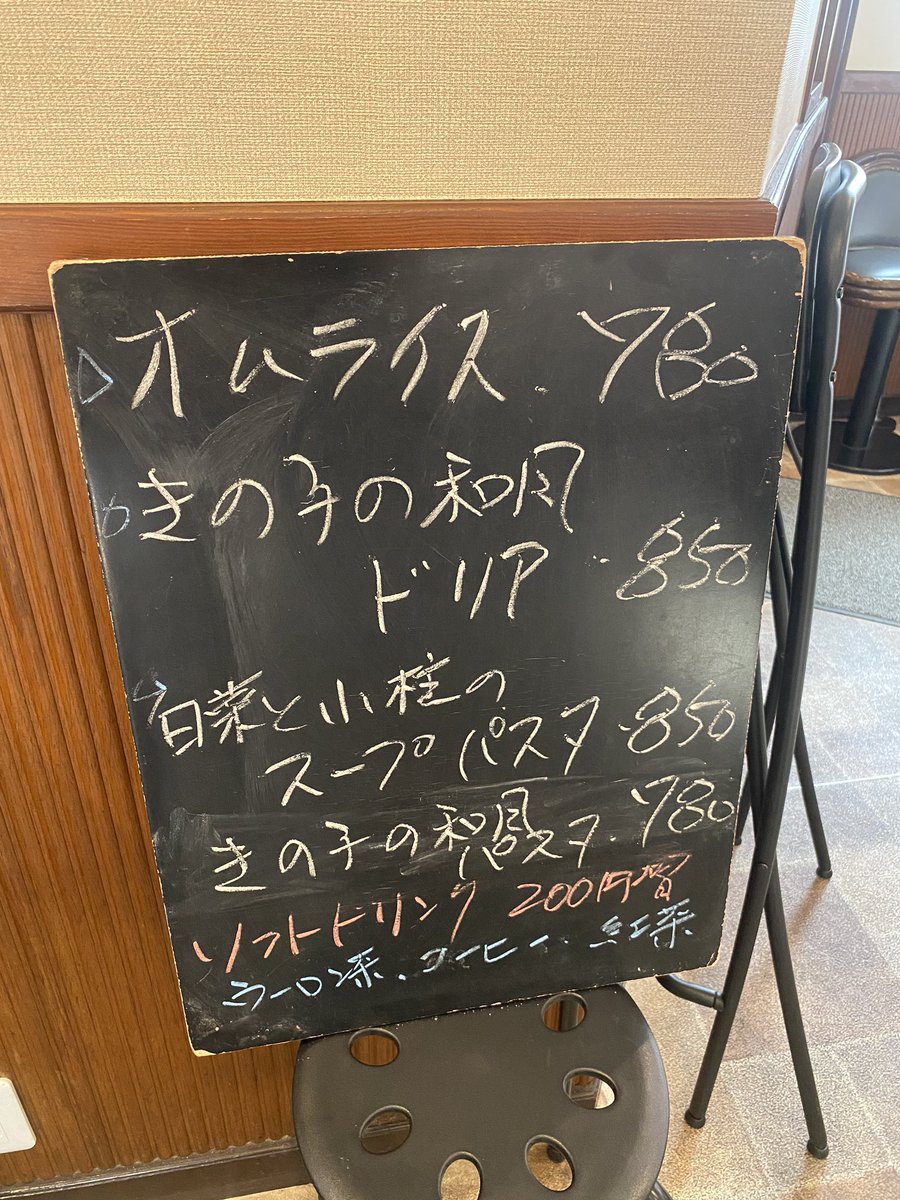 オムライス . 780
きの子の和風
ドリア . 850
白菜と小柱の
スープパスタ . 850
きの子の和風パスタ . 780
ソフトドリンク 200円増
ウーロン茶、コーヒー、紅茶